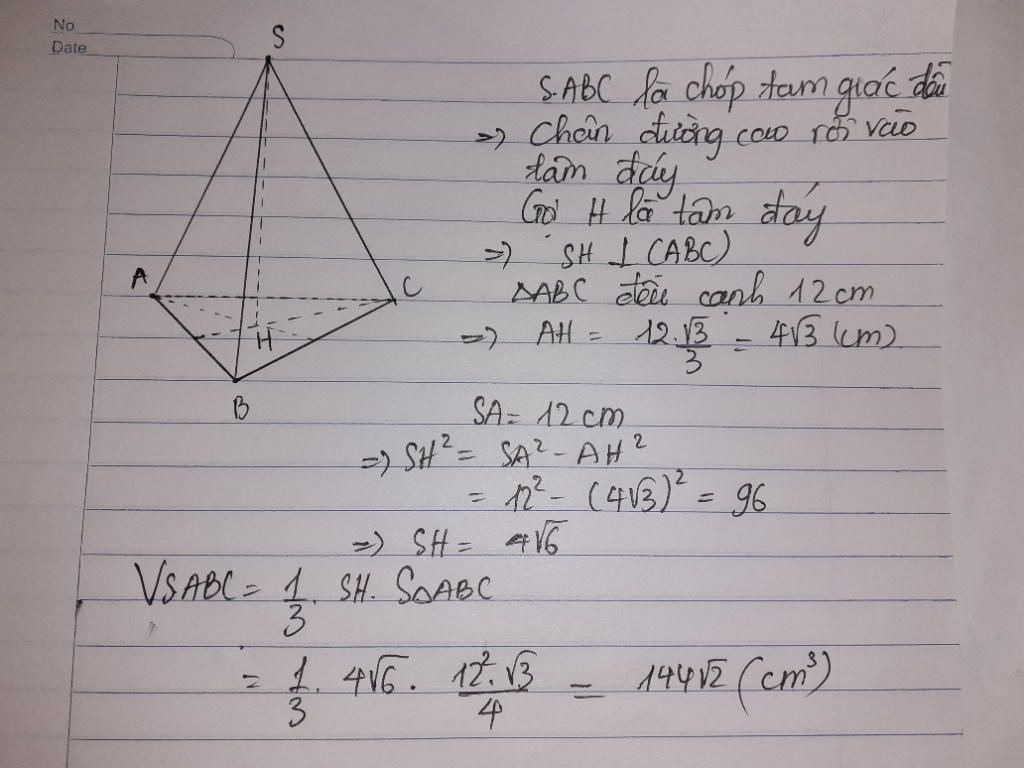 No
Date
S
A
B
C
H
S.ABC là chóp tam giác đều
=> Chân đường cao rơi vào
tâm đáy
Gọi H là tâm đáy
=> SH ⊥ (ABC)
△ABC đều cạnh 12 cm
=> AH = 12.√3/3 = 4√3 (cm)
SA = 12 cm
=> SH² = SA² - AH²
= 12² - (4√3)² = 96
=> SH = 4√6
VSABC = 1/3 . SH. S△ABC
= 1/3 . 4√6 . 12².√3/4 = 144√2 (cm³)